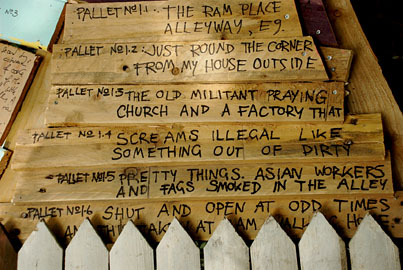 Nº3
PALLET Nº1.1: THE RAM PLACE
ALLEYWAY, E9.
PALLET Nº1.2: JUST ROUND THE CORNER
FROM MY HOUSE OUTSIDE
PALLET Nº1.3 THE OLD MILITANT PRAYING
CHURCH AND A FACTORY THAT
PALLET Nº1.4 SCREAMS ILLEGAL LIKE
SOMETHING OUT OF DIRTY
PALLET Nº1.5 PRETTY THINGS. ASIAN WORKERS
AND FAGS SMOKED IN THE ALLEY
PALLET Nº1.6 SHUT AND OPEN AT ODD TIMES